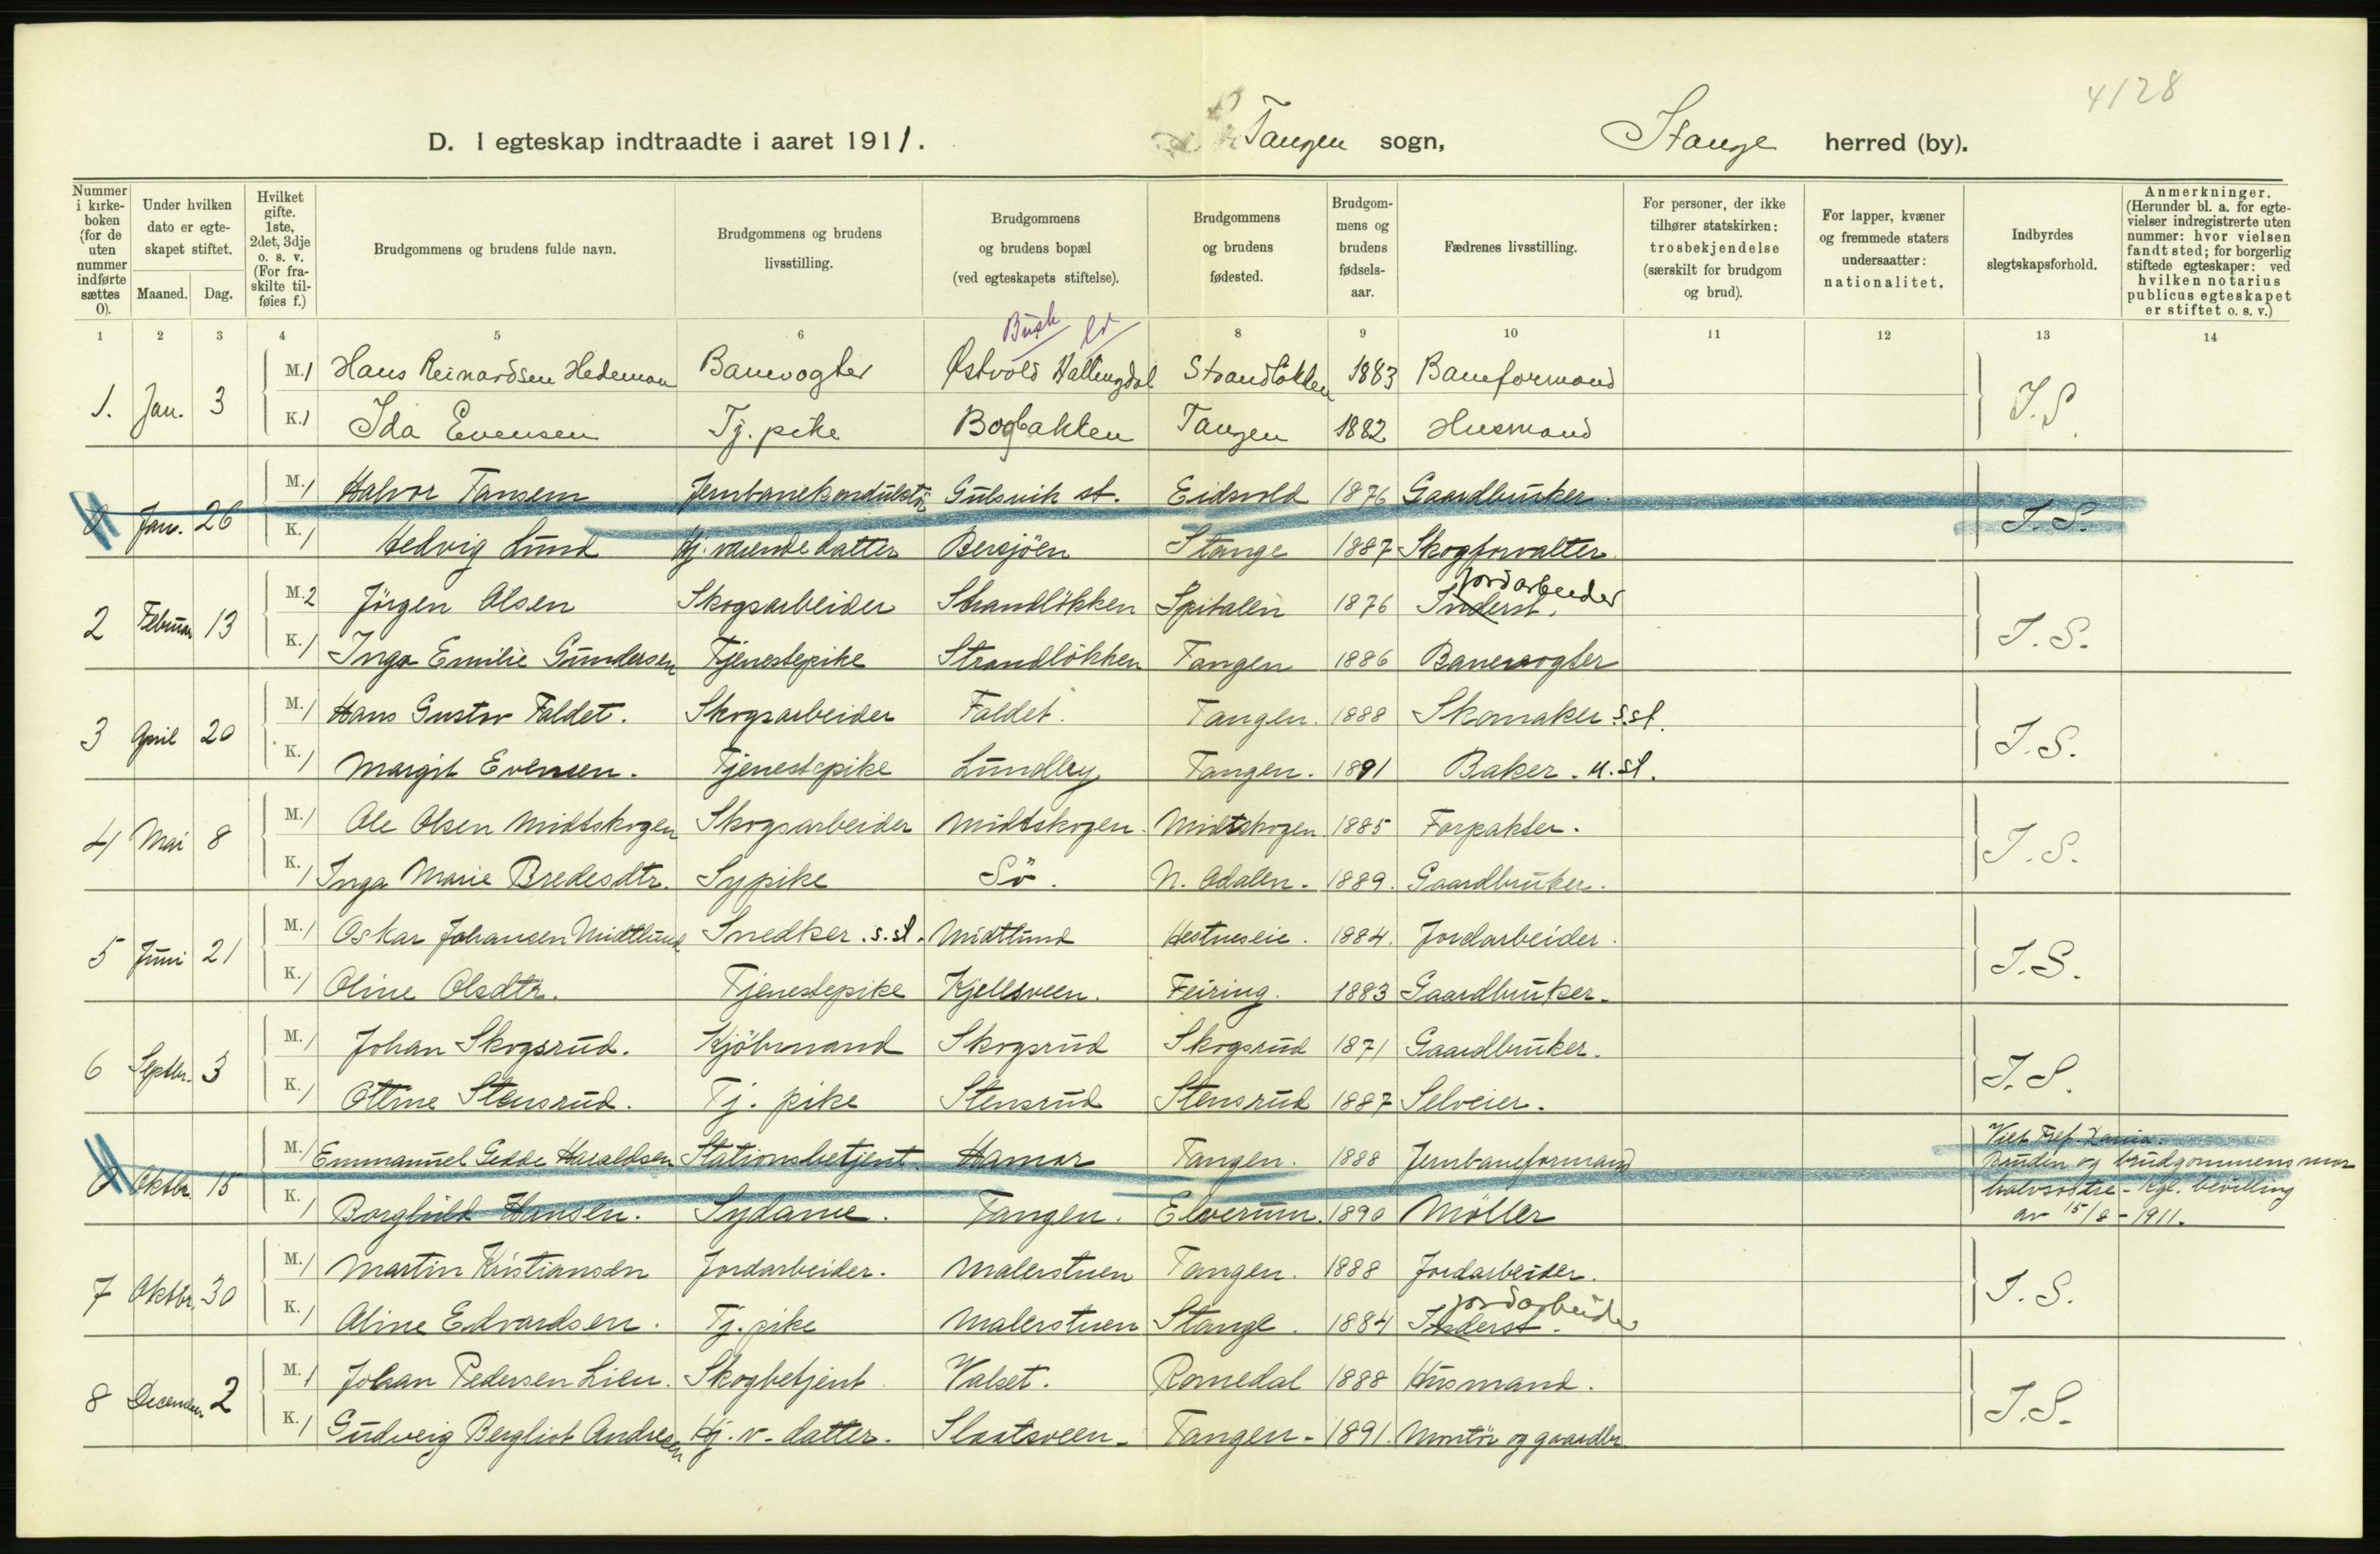 4128
D. I egteskap indtraadte i aaret 1911. Tangen sogn, Stange herred (by).
Nummer i kirkeboken (for de uten nummer indførte sættes 0). Under hvilken dato er egteskapet stiftet. Maaned. Dag. Hvilket gifte. 1ste, 2det, 3dje o. s. v. (For fraskilte tilføies f.) Brudgommens og brudens fulde navn. Brudgommens og brudens livsstilling. Brudgommens og brudens bopæl (ved egteskapets stiftelse). Brudgommens og brudens fødested. Brudgommens og brudens fødselsaar. Fædrenes livsstilling. For personer, der ikke tilhører statskirken: trosbekjendelse (særskilt for brudgom og brud). For lapper, kvæner og fremmede staters undersaatter: nationalitet. Indbyrdes slegtskapsforhold. Anmerkninger. (Herunder bl. a. for egtevielser indregistrerte uten nummer: hvor vielsen fandt sted; for borgerlig stiftede egteskaper: ved hvilken notarius publicus egteskapet er stiftet o. s. v.)
1 2 3 4 5 6 8 9 10 11 12 13 14
Busk
M. 1 Hans Reinardsen Hedeman Banevogter Østvold Hallingdal Strandløkken 1883 Baneformand
1. Jan. 3 I.S.
K. 1 Ida Evensen Tj. pike Bogbakken Tangen 1882 Husmand
M. 1 Halvor Tansem Jernbanekonduktör Gulsvik st. Eidsvold 1876 Gaardbruker.
0 Jan. 26 I.S.
K. 1 Hedvig Lund Hj. værende datter Bergsjöen Stange 1887 Skogforvalter
M. 2 Jörgen Olsen Skogsarbeider Strandlökken Spitalen 1876 Inderst. Jordarbeider
2 Februar 13 I.S.
K. 1 Inga Emilie Gundersen Tjenestepike Strandlökken Tangen 1886 Banevogter
M. 1 Hans Gustav Faldet. Skogsarbeider Faldet. Tangen. 1888 Skomaker s.st.
3 April 20 I.S.
K. 1 Margit Evensen. Tjenestepike Lundby Tangen. 1891 Baker. u.st.
M. 1 Ole Olsen Midtskogen Skogsarbeider Midtskogen. Midtskogen 1885 Forpakter.
4 Mai 8 I.S.
K. 1 Inga Marie Bredesdtr. Sypike Sö. N. Odalen. 1889. Gaardbruker.
M. 1 Oskar Johansen Midtlund Snedker. s.st. Midtlund Hestneseie. 1884. Jordarbeider.
5 Juni 21 I.S.
K. 1 Oline Olsdtr. Tjenestepike Kjellsveen. Feiring. 1883 Gaardbruker.
M. 1 Johan Skogsrud. Kjöbmand Skogsrud Skogsrud 1871 Gaardbruker.
6 Septbr. 3 I.S.
K. 1 Otline Stensrud. Tj. pike Stensrud Stensrud 1887 Selveier.
M. 1 Emmanuel Gedde Haraldsen Stationsbetjent. Hamar Tangen. 1888 Jernbaneformand
0 Oktbr. 15 Bruden og brudgommens mor
K. 1 Borghild Hansen. Sydame. Tangen. Elverum. 1890 Möller halvsöstre - Kgl. bevilling
av 15/8 - 1911.
M. 1 Martin Kristiansen Jordarbeider. Malerstuen Tangen. 1888 Jordarbeider.
7 Oktbr. 30 I.S.
K. 1 Aline Edvardsen. Tj. pike Malerstuen Stange. 1884 Inderst. Jordarbeider
M. 1 Johan Pedersen Lien. Skogbetjent. Valset. Romedal 1888 Husmand.
8 December 2 I.S.
K. 1 Gudveig Bergliot Andresen Hj. v. datter. Slaatsveen. Tangen. 1891. Montör og gaardbr.